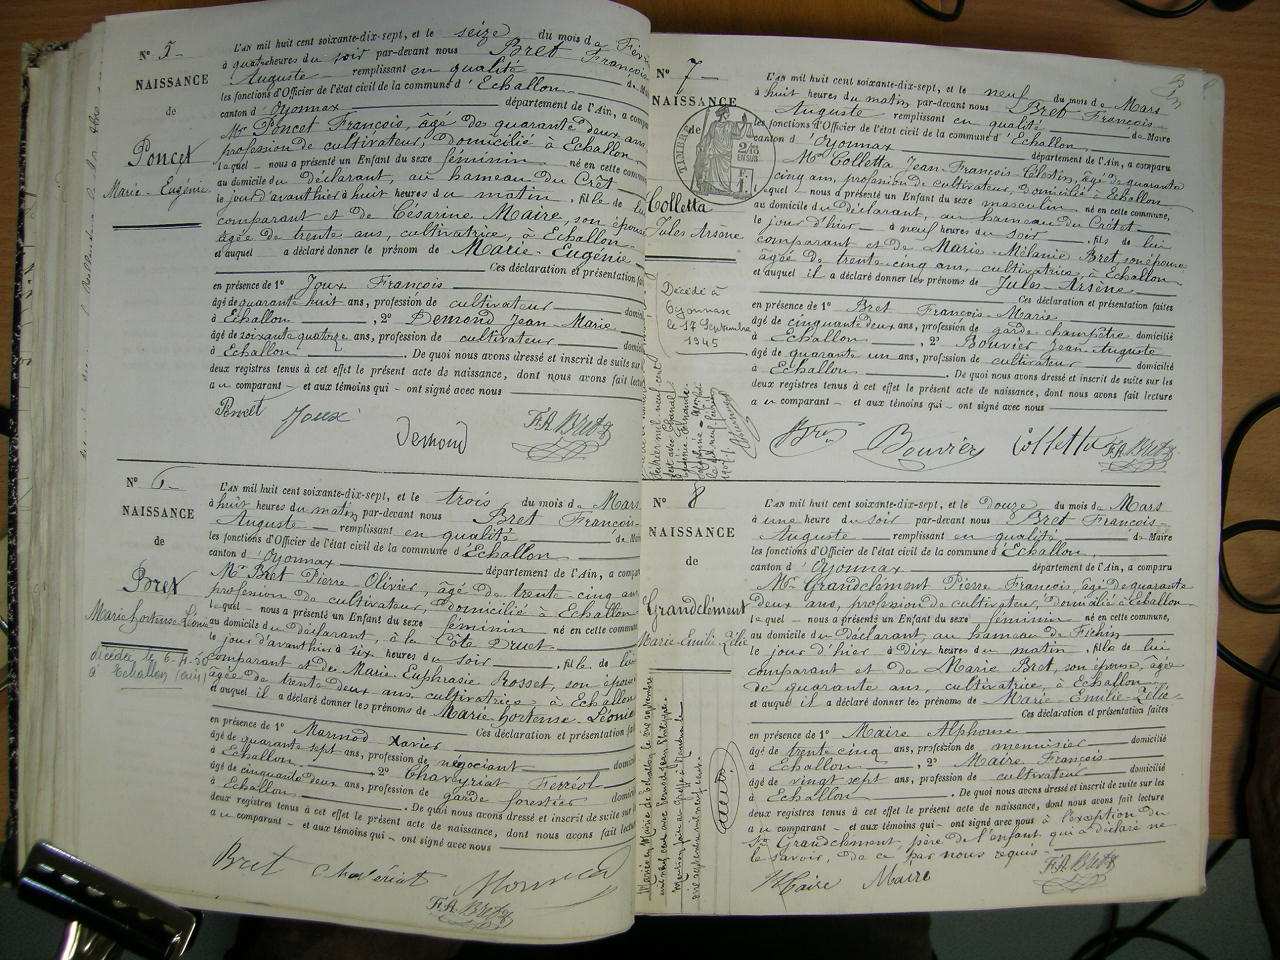 N° 5
NAISSANCE
de
Poncet
Marie-Eugénie
L'AN mil huit cent soixante-dix-sept, et le seize du mois de
à quatre heures du soir par-devant nous Bret François
Auguste remplissant en qualité de
les fonctions d'Officier de l'état civil de la commune d'Echallon
canton d'Oyonnax département de l'Ain, a comparu
Mr Poncet François, âgé de quarante deux ans,
profession de cultivateur, domicilié à Echallon
lequel nous a présenté un Enfant du sexe féminin né en cette commune
au domicile du déclarant, au hameau du Crêt
le jour d'avanthier à huit heures du matin, fille de lui
comparant et de Césarine Maire, son épouse
âgée de trente ans, cultivatrice, à Echallon
et auquel a déclaré donner le prénom de Marie-Eugénie
Ces déclaration et présentation
en présence de 1° Joux François
âgé de quarante huit ans, profession de cultivateur
à Echallon, 2° Demond Jean-Marie
âgé de soixante quatorze ans, profession de cultivateur
à Echallon. De quoi nous avons dressé et inscrit de suite sur
deux registres tenus à cet effet le présent acte de naissance, dont nous avons fait
au comparant et aux témoins qui ont signé avec nous
Poncet Joux Demond F.A. Bret
N° 6
NAISSANCE
de
Bret
Marie Hortense Léonie
décédée le
à Echallon (Ain)
L'AN mil huit cent soixante-dix-sept, et le trois du mois de Mars
à huit heures du matin par-devant nous Bret François
Auguste remplissant en qualité de Maire
les fonctions d'Officier de l'état civil de la commune d'Echallon
canton d'Oyonnax département de l'Ain, a comparu
Mr Bret Pierre Olivier, âgé de trente-cinq ans
profession de cultivateur, domicilié à Echallon
lequel nous a présenté un Enfant du sexe féminin né en cette commune
au domicile du déclarant, à la Côte
le jour d'avanthier à six heures du soir, fille de lui
comparant et de Marie Euphrasie Rosset, son épouse
âgée de trente deux ans cultivatrice à Echallon
et auquel il a déclaré donner les prénoms de Marie Hortense-Léonie
Ces déclaration et présentation
en présence de 1° Marmod Xavier
âgé de quarante sept ans, profession de négociant
à Echallon, 2° Chaveyriat Ferréol
âgé de cinquante deux ans, profession de garde forestier
à Echallon. De quoi nous avons dressé et inscrit de suite sur
deux registres tenus à cet effet le présent acte de naissance, dont nous avons fait lecture
au comparant et aux témoins qui ont signé avec nous
Bret
F.A. Bret
N° 7
NAISSANCE
de
Colletta
Jules Arsène
Décédé à
le 17 Septembre
1945
L'AN mil huit cent soixante-dix-sept, et le neuf du mois de Mars
à huit heures du matin par-devant nous Bret François
Auguste remplissant en qualité de Maire
les fonctions d'Officier de l'état civil de la commune d'Echallon
canton d'Oyonnax département de l'Ain, a comparu
Mr Colletta Jean-François-Célestin, âgé de quarante
cinq ans, profession de cultivateur, domicilié à Echallon
lequel nous a présenté un Enfant du sexe masculin né en cette commune,
au domicile du déclarant, au hameau du Crétet
le jour d'hier à neuf heures du soir, fils de lui
comparant et de Marie-Mélanie Bret, son épouse
âgée de trente-cinq ans, cultivatrice, à Echallon
et auquel il a déclaré donner les prénoms de Jules-Arsène
Ces déclaration et présentation faites
en présence de 1° Bret François-Marie
âgé de cinquante deux ans, profession de garde champêtre domicilié
à Echallon, 2° Bouvier Jean Auguste
âgé de quarante un ans, profession de cultivateur domicilié
à Echallon. De quoi nous avons dressé et inscrit de suite sur les
deux registres tenus à cet effet le présent acte de naissance, dont nous avons fait lecture
au comparant et aux témoins qui ont signé avec nous
Bret Bouvier Colletta F.A. Bret
N° 8
NAISSANCE
de
Grandclément
Marie-Emilie Zélie
L'AN mil huit cent soixante-dix-sept, et le douze du mois de Mars
à une heure du soir par-devant nous Bret François
Auguste remplissant en qualité de Maire
les fonctions d'Officier de l'état civil de la commune d'Echallon
canton d'Oyonnax département de l'Ain, a comparu
Mr Grandclément Pierre François, âgé de quarante
deux ans, profession de cultivateur, domicilié à Echallon
lequel nous a présenté un Enfant du sexe féminin né en cette commune,
au domicile du déclarant, au hameau de
le jour d'hier à dix heures du matin fille de lui
comparant et de Marie Bret, son épouse, âgée
de quarante ans, cultivatrice, à Echallon
et auquel il a déclaré donner les prénoms de Marie-Emilie-Zélie
Ces déclaration et présentation faites
en présence de 1° Maire Alphonse
âgé de trente cinq ans, profession de menuisier domicilié
à Echallon, 2° Maire François
âgé de vingt sept ans, profession de cultivateur domicilié
à Echallon. De quoi nous avons dressé et inscrit de suite sur les
deux registres tenus à cet effet le présent acte de naissance, dont nous avons fait lecture
au comparant et aux témoins qui ont signé avec nous à l'exception du
Sr Grandclément, père de l'enfant qui a déclaré ne
le savoir, de ce par nous requis
Maire Maire F.A. Bret